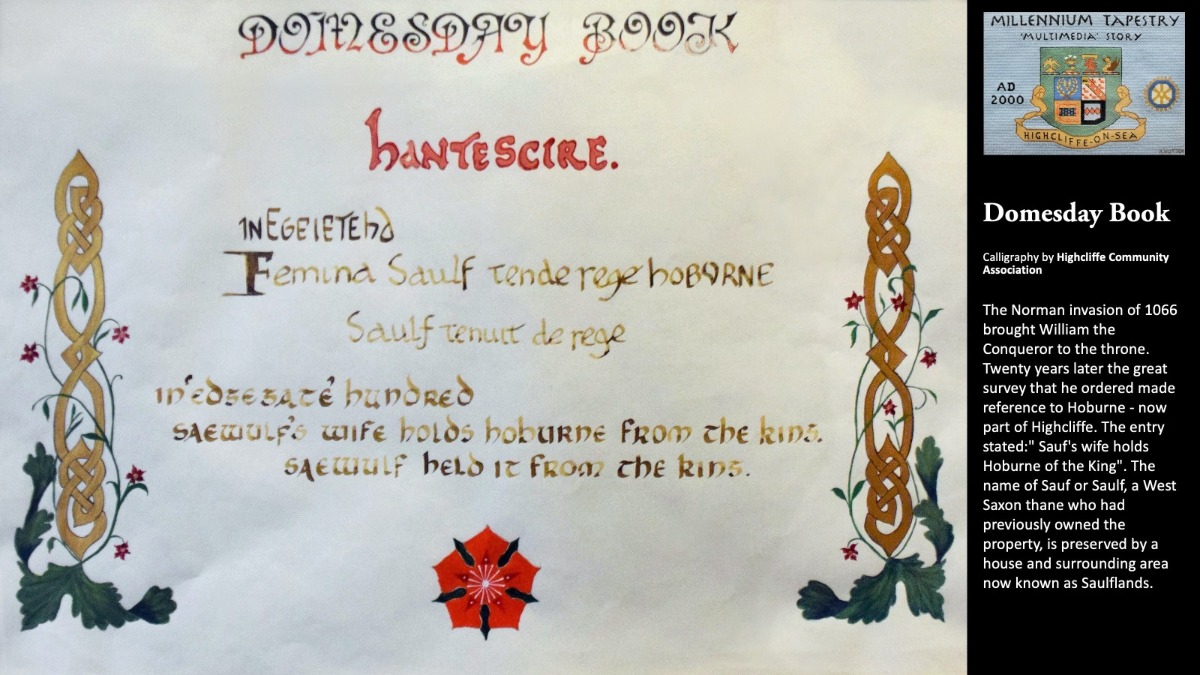 DOMESDAY BOOK
hANTESCIRE.
IN EGEIETEhd
Femina Saulf tende rege hOBVRNE
Saulf tenuit de rege
in 'edgegate' hundred
saewulf's wife holds hoburne from the king.
saewulf held it from the king.
MILLENNIUM TAPESTRY
'MULTIMEDIA' STORY
AD
2000
HIGHCLIFFE-ON-SEA
Domesday Book
Calligraphy by Highcliffe Community
Association
The Norman invasion of 1066
brought William the
Conqueror to the throne.
Twenty years later the great
survey that he ordered made
reference to Hoburne - now
part of Highcliffe. The entry
stated:" Sauf's wife holds
Hoburne of the King". The
name of Sauf or Saulf, a West
Saxon thane who had
previously owned the
property, is preserved by a
house and surrounding area
now known as Saulflands.